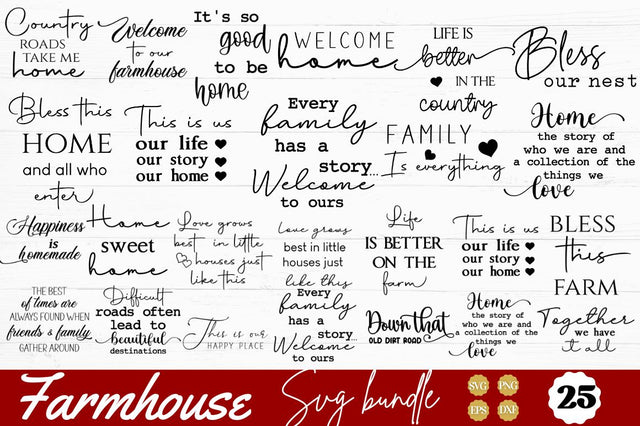 Country
ROADS
TAKE ME
home
Welcome
to our
farmhouse
It's so
good
to be
home
WELCOME
home
LIFE IS
better
IN THE
country
Bless
our nest
Bless this
HOME
and all who
enter
This is us
our life
our story
our home
Every
family
has a
story...
Welcome
to ours
FAMILY
Is everything
Home
the story of
who we are and
a collection of the
things we
love
Happiness
is
homemade
Home
sweet
home
Love grows
best in little
houses just
like this
Love grows
best in little
houses just
like this
Life
IS BETTER
ON THE
farm
This is us
our life
our story
our home
BLESS
this
FARM
THE BEST
of times are
ALWAYS FOUND WHEN
friends & family
GATHER AROUND
Difficult
roads often
lead to
beautiful
destinations
This is our
HAPPY PLACE
Every
family
has a
story...
Welcome
to ours
Down that
OLD DIRT ROAD
Home
the story of
who we are and
a collection of the
things we
love
Together
we have
it all
Farmhouse Svg bundle
SVG PNG
EPS DXF
25